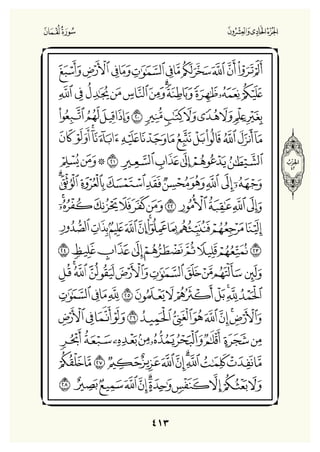 الجُزْءُ الحَادِي وَالعِشْرُونَ
سُورَةُ لُقْمَانَ
أَلَمْ تَرَوْا۟ أَنَّ ٱللَّهَ سَخَّرَ لَكُم مَّا فِى ٱلسَّمَٰوَٰتِ وَمَا فِى ٱلْأَرْضِ وَأَسْبَغَ
عَلَيْكُمْ نِعَمَهُۥ ظَٰهِرَةً وَبَاطِنَةً ۗ وَمِنَ ٱلنَّاسِ مَن يُجَٰدِلُ فِى ٱللَّهِ
بِغَيْرِ عِلْمٍ وَلَا هُدًى وَلَا كِتَٰبٍ مُّنِيرٍ ٢٠ وَإِذَا قِيلَ لَهُمُ ٱتَّبِعُوا۟
مَآ أَنزَلَ ٱللَّهُ قَالُوا۟ بَلْ نَتَّبِعُ مَا وَجَدْنَا عَلَيْهِ ءَابَآءَنَآ ۚ أَوَلَوْ كَانَ
ٱلشَّيْطَٰنُ يَدْعُوهُمْ إِلَىٰ عَذَابِ ٱلسَّعِيرِ ٢١ ۞ وَمَن يُسْلِمْ
وَجْهَهُۥٓ إِلَى ٱللَّهِ وَهُوَ مُحْسِنٌ فَقَدِ ٱسْتَمْسَكَ بِٱلْعُرْوَةِ ٱلْوُثْقَىٰ ۗ
وَإِلَى ٱللَّهِ عَٰقِبَةُ ٱلْأُمُورِ ٢٢ وَمَن كَفَرَ فَلَا يَحْزُنكَ كُفْرُهُۥٓ ۚ
إِلَيْنَا مَرْجِعُهُمْ فَنُنَبِّئُهُم بِمَا عَمِلُوٓا۟ ۚ إِنَّ ٱللَّهَ عَلِيمٌۢ بِذَاتِ ٱلصُّدُورِ
٢٣ نُمَتِّعُهُمْ قَلِيلًا ثُمَّ نَضْطَرُّهُمْ إِلَىٰ عَذَابٍ غَلِيظٍ ٢٤
وَلَئِن سَأَلْتَهُم مَّنْ خَلَقَ ٱلسَّمَٰوَٰتِ وَٱلْأَرْضَ لَيَقُولُنَّ ٱللَّهُ ۚ قُلِ
ٱلْحَمْدُ لِلَّهِ ۚ بَلْ أَكْثَرُهُمْ لَا يَعْلَمُونَ ٢٥ لِلَّهِ مَا فِى ٱلسَّمَٰوَٰتِ
وَٱلْأَرْضِ ۚ إِنَّ ٱللَّهَ هُوَ ٱلْغَنِىُّ ٱلْحَمِيدُ ٢٦ وَلَوْ أَنَّمَا فِى ٱلْأَرْضِ
مِن شَجَرَةٍ أَقْلَٰمٌ وَٱلْبَحْرُ يَمُدُّهُۥ مِنۢ بَعْدِهِۦ سَبْعَةُ أَبْحُرٍ
مَّا نَفِدَتْ كَلِمَٰتُ ٱللَّهِ ۗ إِنَّ ٱللَّهَ عَزِيزٌ حَكِيمٌ ٢٧ مَّا خَلْقُكُمْ
وَلَا بَعْثُكُمْ إِلَّا كَنَفْسٍ وَٰحِدَةٍ ۗ إِنَّ ٱللَّهَ سَمِيعٌۢ بَصِيرٌ ٢٨
الحزب
٤٢
٤١٣